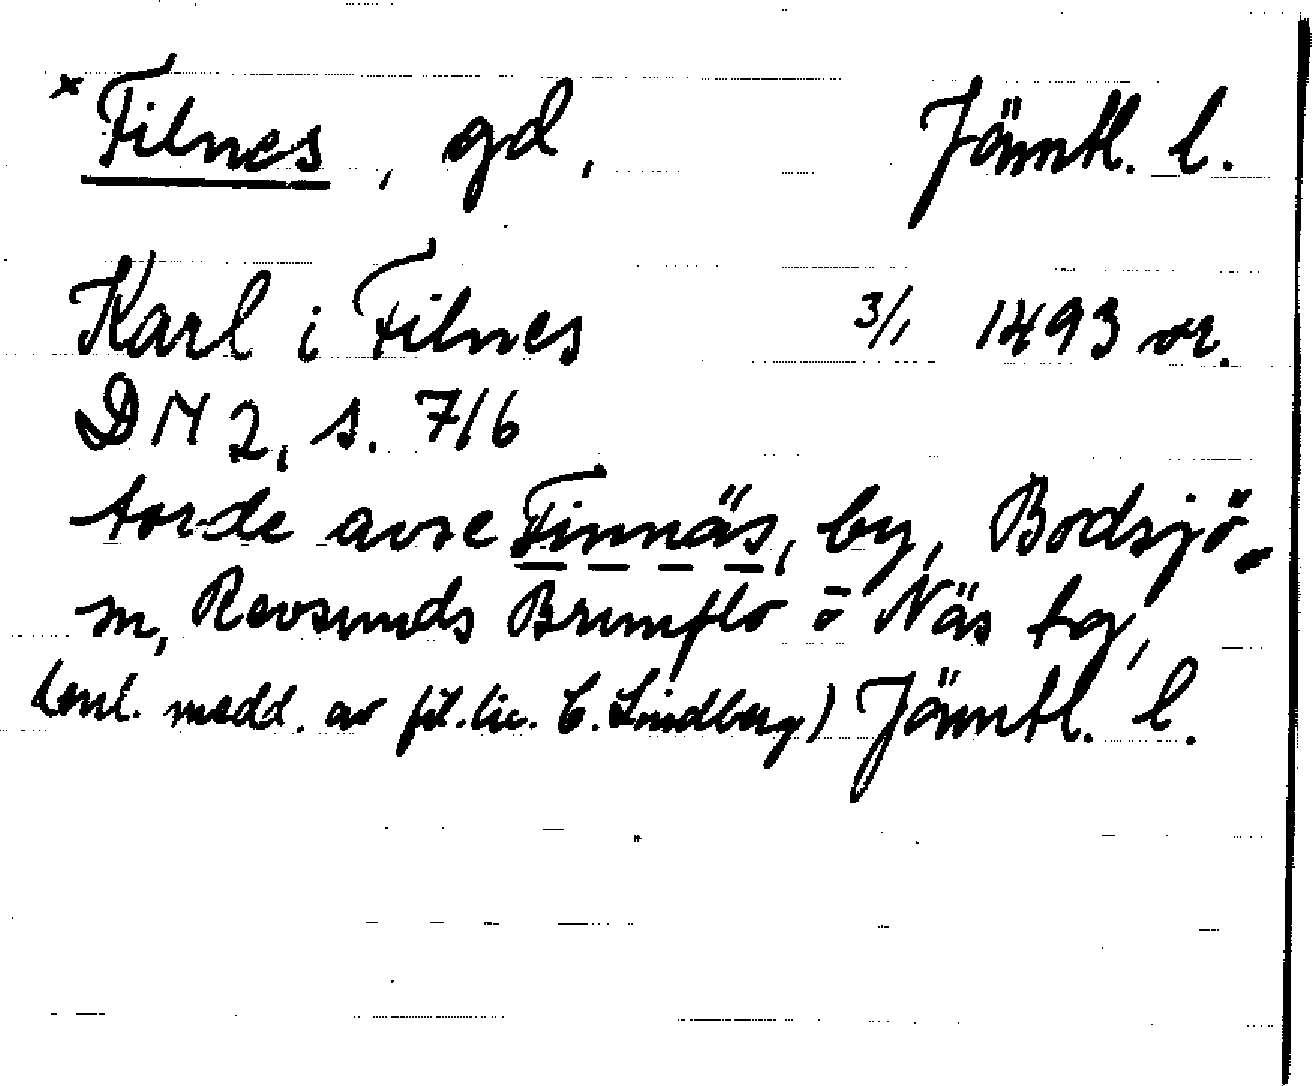 × Filnes, gd, Jämtl. l.
Karl i Filnes 3/1 1493 or.
DN 2, s. 716
torde avse Finnäs, by, Bodsjö
sn, Revsunds Brunflo o Näs tg,
(enl. medd. av fil.lic. C. Lindberg) Jämtl. l.